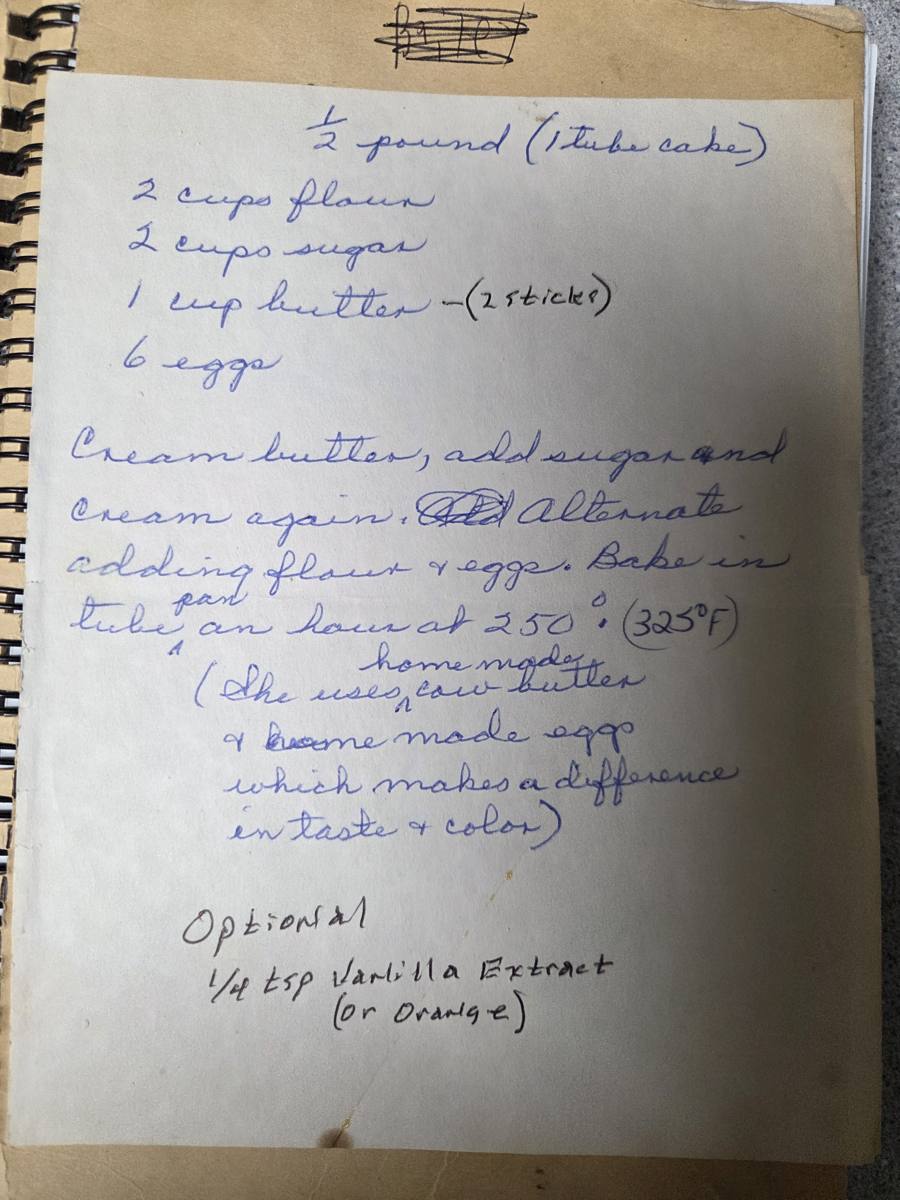 1/2 pound (1 tube cake)
2 cups flour
2 cups sugar
1 cup butter - (2 sticks)
6 eggs
Cream butter, add sugar and
cream again. Alternate
adding flour & eggs. Bake in
tube pan an hour at 250°. (325°F)
(She uses home made cow butter
& home made eggs
which makes a difference
in taste & color)
Optional
1/4 tsp Vanilla Extract
(or Orange)